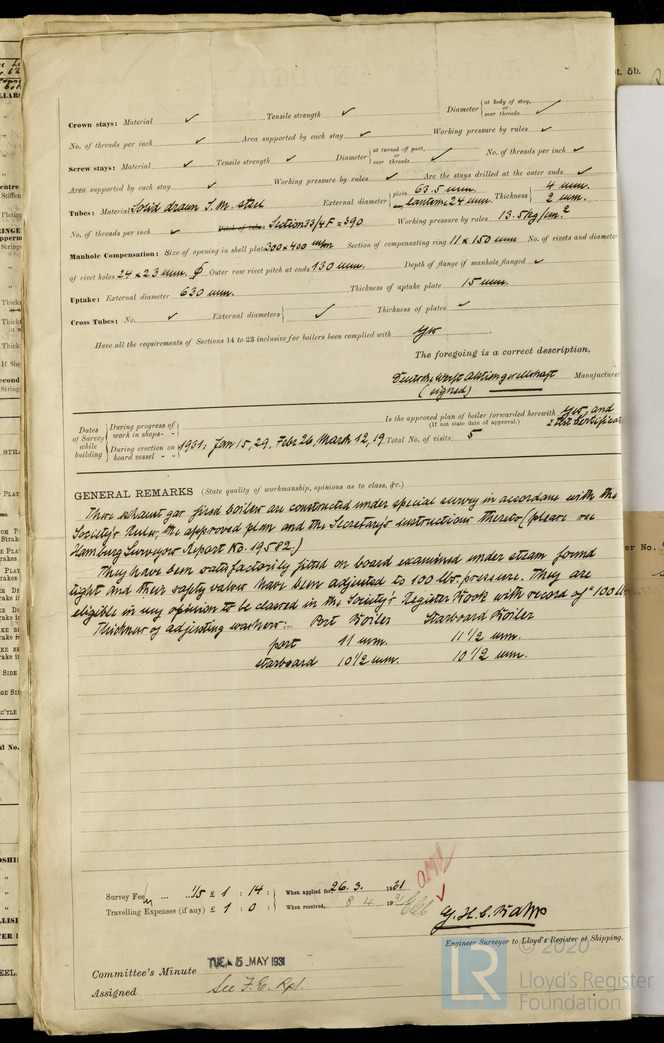 t. 5b.
Crown stays: Material ✓ Tensile strength ✓ Diameter { at body of stay, or over threads ✓
No. of threads per inch ✓ Area supported by each stay ✓ Working pressure by rules ✓
Screw stays: Material ✓ Tensile strength ✓ Diameter { at turned off part, or over threads ✓ No. of threads per inch ✓
Area supported by each stay ✓ Working pressure by rules ✓ Are the stays drilled at the outer ends ✓
Tubes: Material Solid drawn S.M. steel External diameter { plain 63.5 mm. Lantern 24 mm. Thickness { 4 mm. 2 mm.
No. of threads per inch ✓ Pitch of tubes Section 33/4 F = 390 Working pressure by rules 13.5 kg/cm.²
Manhole Compensation: Size of opening in shell plate 300 x 400 m/m Section of compensating ring 11 x 150 mm No. of rivets and diameter
of rivet holes 24 x 23 mm. ϕ Outer row rivet pitch at ends 130 mm. Depth of flange if manhole flanged ✓
Uptake: External diameter 630 mm. Thickness of uptake plate 15 mm.
Cross Tubes: No. ✓ External diameters { ✓ Thickness of plates ✓
Have all the requirements of Sections 14 to 23 inclusive for boilers been complied with Yes
The foregoing is a correct description,
Deutsche Werft Aktiengesellschaft Manufacturer
(signed)
Dates of Survey while building { During progress of work in shops - - During erection on board vessel - - } 1931: Jan 15, 29, Febr 26, March 12, 19 Total No. of visits 5
Is the approved plan of boiler forwarded herewith Yes, and
(If not state date of approval.) 2 test certificates
GENERAL REMARKS (State quality of workmanship, opinions as to class, &c.)
These exhaust gas fired boilers are constructed under special survey in accordance with the
Society's Rules, the approved plan and the Secretary's instructions thereto (please see
Hamburg Surveyors Report No. 19582.)
They have been satisfactorily fitted on board examined under steam found
tight and their safety valves have been adjusted to 100 lbs. pressure. They are
eligible in my opinion to be classed in the Society's Register Book with record of "100 lbs
Thickness of adjusting washers:- Port Boiler Starboard Boiler
port 11 mm. 11 1/2 mm.
starboard 10 1/2 mm. 10 1/2 mm.
Survey Fee ... ... 1/5 £ 1 : 14 : } When applied for, 26. 3. 1931
Travelling Expenses (if any) £ 1 : 0 : } When received, 8. 4. 1931
Engineer Surveyor to Lloyd's Register of Shipping.
Committee's Minute TUE. 5 MAY 1931
Assigned See F.E. Rpt.
© 2020
LR Lloyd's Register
Foundation